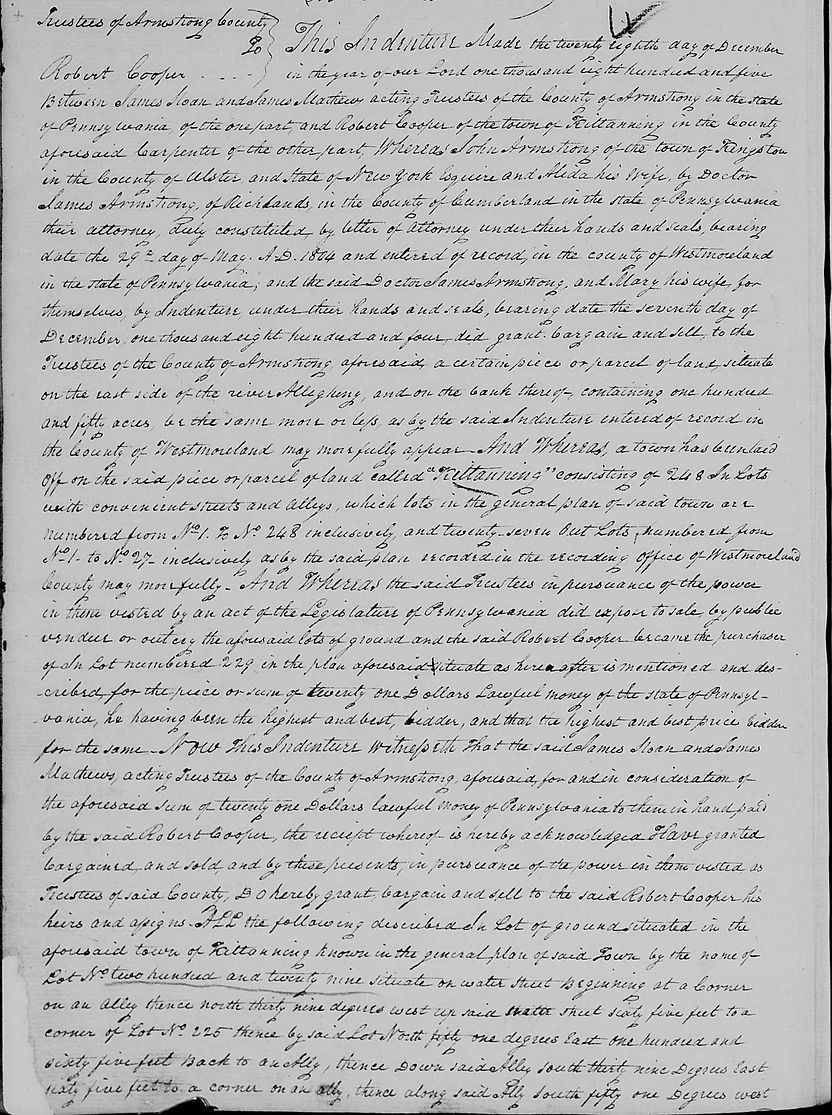 Trustees of Armstrong County
To
Robert Cooper - - - -
This Indenture Made the twenty eighth day of December
in the year of our Lord one thousand eight hundred and five
Between James Sloan and James Mathew acting Trustees of the County of Armstrong in the state
of Pennsylvania of the one part, and Robert Cooper of the town of Kittanning in the County
aforesaid Carpenter of the other part, Whereas John Armstrong of the town of Kingston
in the County of Ulster, and State of New York Esquire and Alida his Wife, by Doctor
James Armstrong, of Richlands, in the County of Cumberland in the state of Pennsylvania
their attorney, duly constituted, by letter of Attorney under their hands and seals, bearing
date the 29th day of May. A.D. 1804 and entered of record, in the county of Westmoreland
in the state of Pennsylvania; and the said Doctor James Armstrong, and Mary his wife, for
themselves, by Indenture under their hands and seals, bearing date the seventh day of
December, one thousand eight hundred and four, did grant bargain and sell, to the
Trustees of the County of Armstrong, aforesaid, a certain piece or parcel of land, situate
on the east side of the river Allegheny, and on the bank thereof, containing one hundred
and fifty acres, be the same more or less, as by the said Indenture entered of record in
the County of Westmoreland may more fully appear - And Whereas, a town has been laid
off on the said piece or parcel of land called "Kittanning" consisting of 248 In Lots
with convenient streets and Alleys, which lots in the general plan of said town are
numbered from No. 1. To No. 248 inclusively, and twenty-seven Out Lots, numbered from
No. 1 - to No. 27 - inclusively as by the said plan recorded in the recording office of Westmoreland
County may more fully - And Whereas the said Trustees in pursuance of the power
in them vested by an act of the Legislature of Pennsylvania did expose to sale, by public
vendue or outcry the aforesaid lots of ground and the said Robert Cooper became the purchaser
of In Lot numbered 229 in the plan aforesaid situate as herein after is mentioned and des-
-cribed, for the price or sum of twenty one Dollars Lawful money of the state of Pennsyl-
-vania, he having been the highest and best, bidder, and that the highest and best price bidden
for the same - Now This Indenture Witnesseth That the said James Sloan and James
Mathews, acting Trustees of the County of Armstrong, aforesaid, for and in consideration of
the aforesaid sum of twenty one Dollars lawful money of Pennsylvania to them in hand, paid
by the said Robert Cooper, the reciept whereof is hereby acknowledged Have granted
bargained, and sold, and by these presents, in pursuance of the power in them vested as
Trustees of said County, Do hereby grant, bargain and sell to the said Robert Cooper his
heirs and assigns ALL the following described In Lot of ground situated in the
aforesaid town of Kittanning known in the general plan of said Town by the name of
Lot No. two hundred and twenty nine situate on water street Beginning at a Corner
on an Alley thence north thirty nine degrees west up said water street sixty five feet to a
corner of Lot No. 225 thence by said Lot North fifty one degrees East one hundred and
sixty five feet Back to an Ally, thence Down said Ally south thirty nine Degrees East
sixty five feet to a corner on an ally, thence along said Ally South fifty one Degrees west